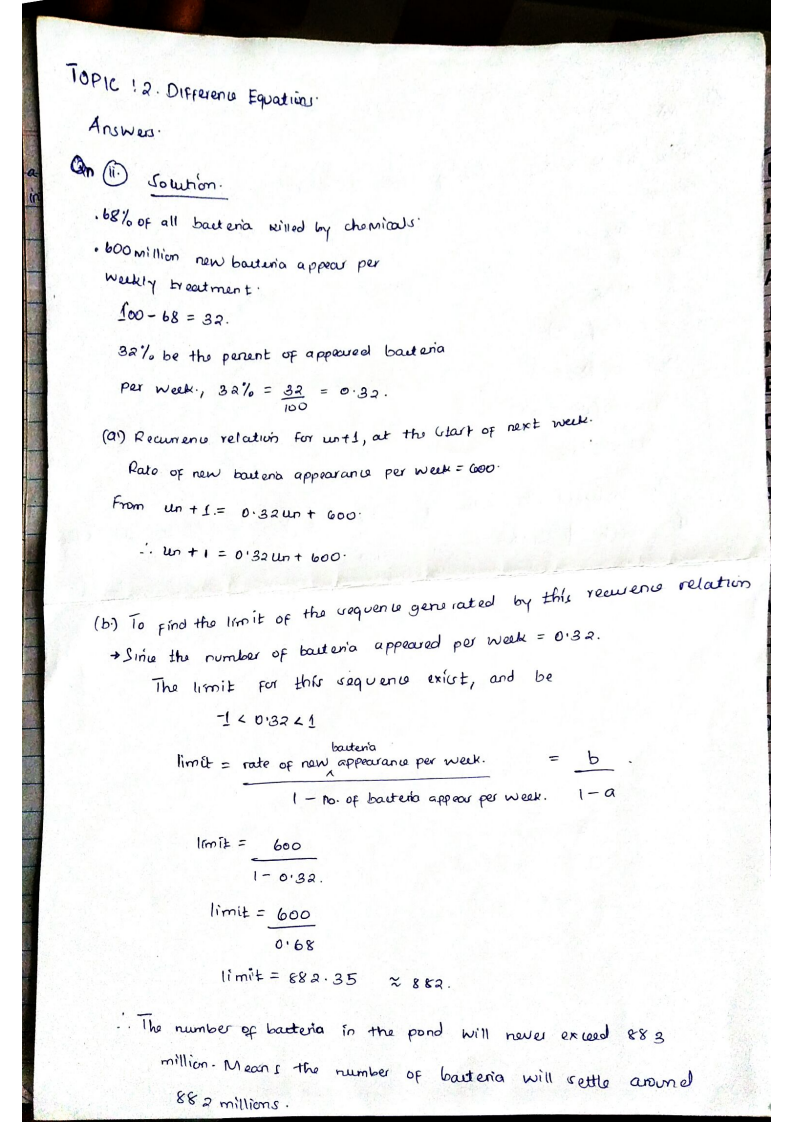 TOPIC : 2. Difference Equations.
Answers.
Qn (ii.) Solution.
. 68% of all bacteria killed by chemicals.
• 600 million new bacteria appear per
weekly treatment.
100 - 68 = 32.
32% be the percent of appeared bacteria
per week., 32% = 32/100 = 0.32.
(a.) Recurrence relation for un+1, at the start of next week.
Rate of new bacteria appearance per week = 600.
From un + 1 = 0.32un + 600.
∴ un + 1 = 0.32un + 600.
(b.) To find the limit of the sequence generated by this recurence relation
→ Since the number of bacteria appeared per week = 0.32.
The limit for this sequence exist, and be
-1 < 0.32 < 1
limit = rate of new bacteria appearance per week. / 1 - no. of bacteria appear per week. = b / 1-a .
limit = 600 / 1 - 0.32.
limit = 600 / 0.68
limit = 882.35 ≈ 882.
∴ The number of bacteria in the pond will never exceed 883
million. Means the number of bacteria will settle around
882 millions.